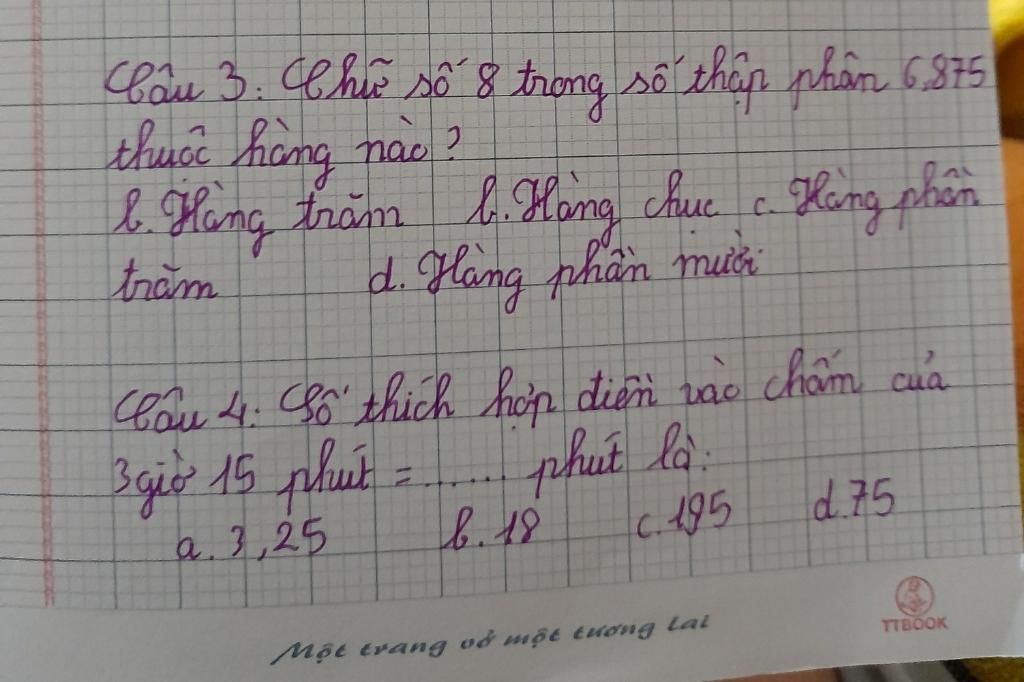 Câu 3. Chữ số 8 trong số thập phân 6,875
thuộc hàng nào?
b. Hàng trăm b. Hàng chục c. Hàng phần
trăm d. Hàng phần mười
Câu 4. Số thích hợp điền vào chấm của
3 giờ 15 phút = ...... phút là:
a. 3,25 b. 18 c. 195 d. 75
Một trang vở một tương lai
TTBOOK